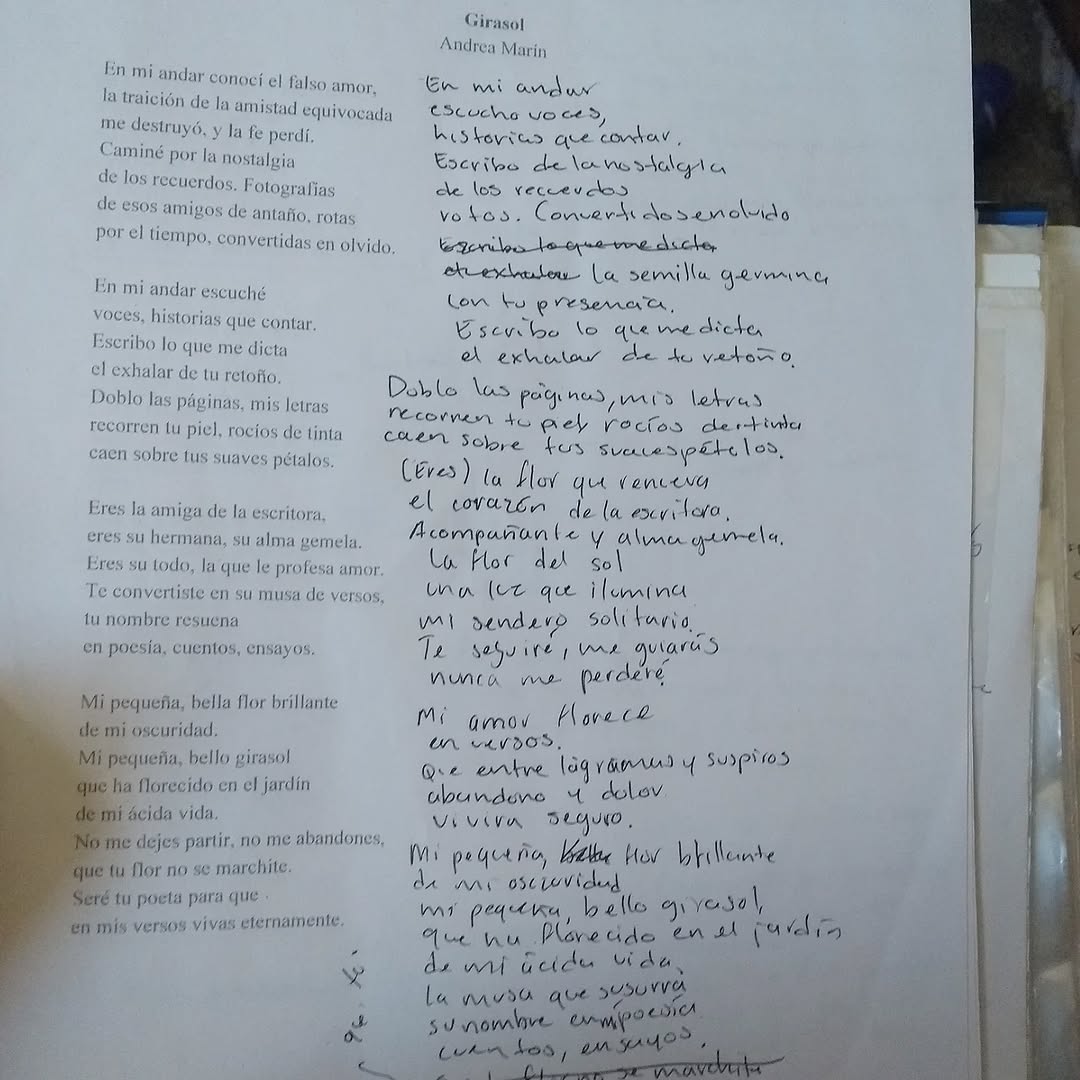 Girasol
Andrea Marín
En mi andar conocí el falso amor,
la traición de la amistad equivocada
me destruyó, y la fe perdí.
Caminé por la nostalgia
de los recuerdos. Fotografías
de esos amigos de antaño, rotas
por el tiempo, convertidas en olvido.
En mi andar escuché
voces, historias que contar.
Escribo lo que me dicta
el exhalar de tu retoño.
Doblo las páginas, mis letras
recorren tu piel, rocíos de tinta
caen sobre tus suaves pétalos.
Eres la amiga de la escritora,
eres su hermana, su alma gemela.
Eres su todo, la que le profesa amor.
Te convertiste en su musa de versos,
tu nombre resuena
en poesía, cuentos, ensayos.
Mi pequeña, bella flor brillante
de mi oscuridad.
Mi pequeña, bello girasol
que ha florecido en el jardín
de mi ácida vida.
No me dejes partir, no me abandones,
que tu flor no se marchite.
Seré tu poeta para que
en mis versos vivas eternamente.
En mi andar
escucho voces,
historias que contar.
Escribo de la nostalgia
de los recuerdos
rotos. Convertidos en olvido
Escribo lo que me dicta
el exhalar la semilla germina
con tu presencia.
Escribo lo que me dicta
el exhalar de tu retoño.
Doblo las páginas, mis letras
recorren tu piel rocíos de tinta
caen sobre tus suaves pétalos.
(Eres) la flor que renueva
el corazón de la escritora.
Acompañante y alma gemela.
La flor del sol
una luz que ilumina
mi sendero solitario.
Te seguiré, me guiarás
nunca me perderé
Mi amor florece
en versos.
Que entre lágramas y suspiros
abandono y dolor
vivira seguro.
Mi pequeña, flor brillante
de mi oscuridad
mi pequeña, bello girasol,
que ha florecido en el jardín
de mi ácida vida,
la musa que susurra
su nombre en mi poesía
cuentos, ensayos.
no se marchite